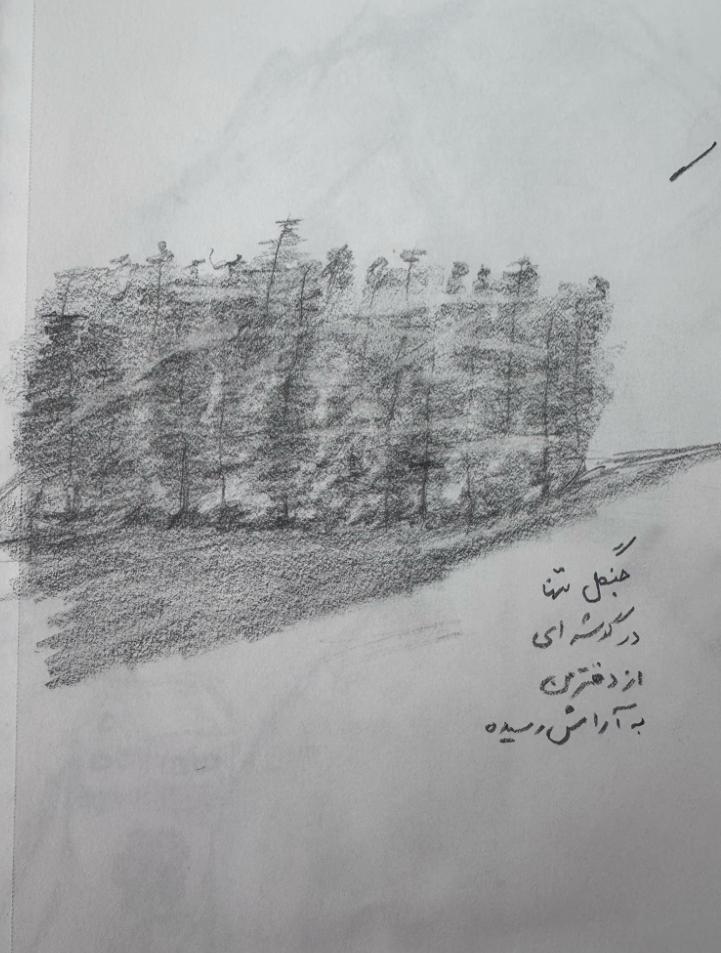 جنگل تنها
در گوشه ای
از دفتر من
به آرامش رسیده